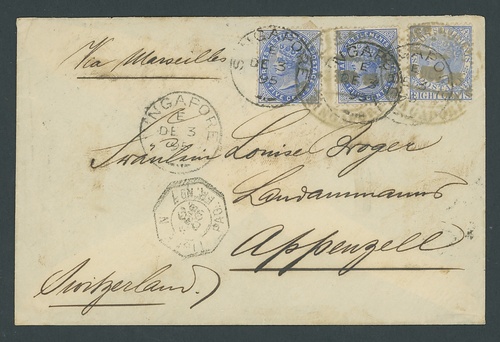 Via Marseilles
SINGAPORE
E
DE 3
95
EIGHT CENTS
SINGAPORE
E
DE 3
Fräulein Louise
Landammanns
Appenzell
Switzerland
LIGNE N
PAQ. FR. No